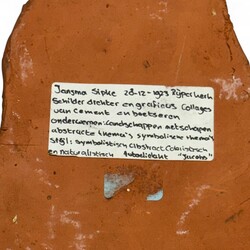 Jansma Sipke 28-12-1953 Rijperkerk
Schilder dichter en graficus Collages
van cement en
onderwerpen: Landschappen
abstracte thema's symbolische thema's
Stijl: symbolistisch Abstract Coloristisch
en naturalistisch Autodidakt "Jacobs"